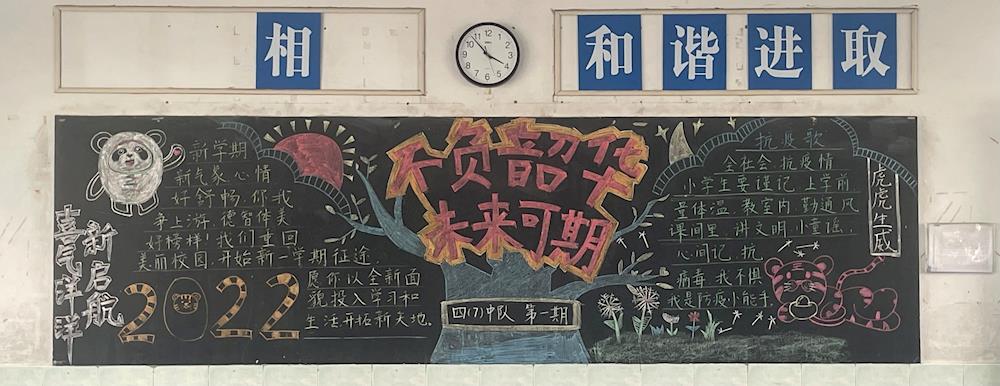 相
和谐进取
不负韶华
未来可期
新学期
新气象,心情
好舒畅,你我
争上游,德智体美
好榜样!我们重回
美丽校园,开始新一学期征途,
愿你以全新面
貌投入学习和
生活开拓新天地.
喜气洋洋
新启航
2022
四(7)中队 第一期
抗疫歌
全社会,抗疫情
小学生要谨记,上学前
量体温,教室内,勤通风
课间里,讲文明,小童谣,
心间记,抗
病毒,我不惧
我是防疫小能手.
虎虎生威
12
1
2
3
4
5
6
7
8
9
10
11